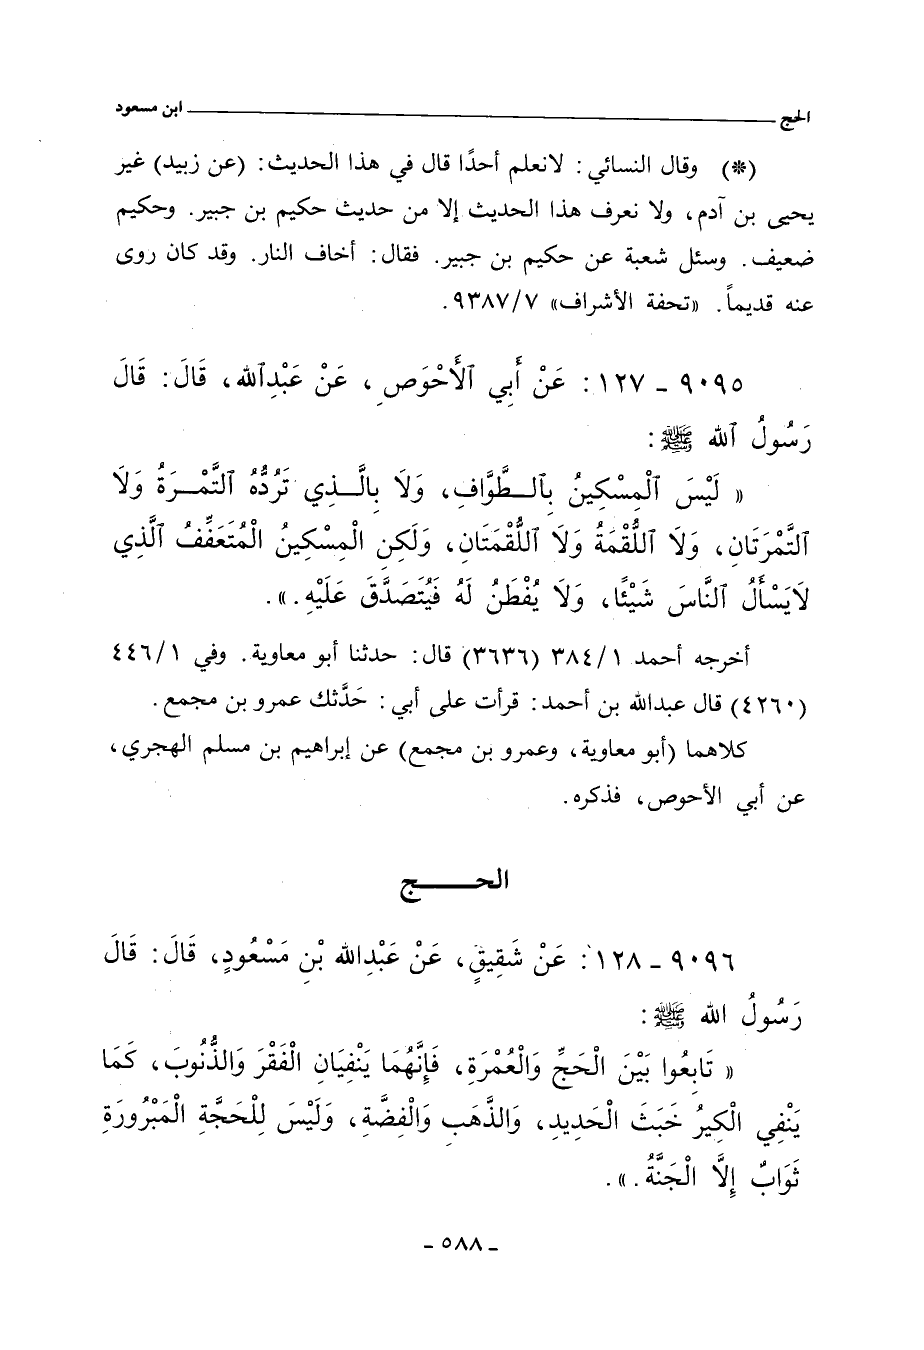 الحج ابن مسعود
(*) وقال النسائي: لانعلم أحدًا قال في هذا الحديث: (عن زبيد) غير
يحيى بن آدم، ولا نعرف هذا الحديث إلا من حديث حكيم بن جبير. وحكيم
ضعيف. وسئل شعبة عن حكيم بن جبير. فقال: أخاف النار. وقد كان روى
عنه قديماً. «تحفة الأشراف» ٩٣٨٧/٧.
٩٠٩٥ - ١٢٧: عَنْ أَبِي ٱلأَحْوَصِ، عَنْ عَبْدِٱللهِ، قَالَ: قَالَ
رَسُولُ ٱللهِ ﷺ:
« لَيْسَ ٱلْمِسْكِينُ بِٱلـطَّوَّافِ، وَلَا بِالَّـذِي تَرُدُّهُ ٱلتَّمْـرَةُ وَلَا
ٱلتَّمْرَتَانِ، وَلَا ٱللُّقْمَةُ وَلَا ٱللُّقْمَتَانِ، وَلَكِنِ الْمِسْكِينُ الْمُتَعَفِّفُ ٱلَّذِي
لَايَسْأَلُ ٱلنَّاسَ شَيْئًا، وَلَا يُفْطَنُ لَهُ فَيُتَصَدَّقَ عَلَيْهِ.».
أخرجه أحمد ٣٨٤/١ (٣٦٣٦) قال: حدثنا أبو معاوية. وفي ٤٤٦/١
(٤٢٦٠) قال عبدالله بن أحمد: قرأت على أبي: حَدَّثك عمرو بن مجمع.
كلاهما (أبو معاوية، وعمرو بن مجمع) عن إبراهيم بن مسلم الهجري،
عن أبي الأحوص، فذكره.
الحـــــج
٩٠٩٦ - ١٢٨: عَنْ شَقِيقٍ، عَنْ عَبْدِاللهِ بْنِ مَسْعُودٍ، قَالَ: قَالَ
رَسُولُ اللهِ ﷺ:
« تَابِعُوا بَيْنَ الْحَجِّ وَالْعُمْرَةِ، فَإِنَّهُمَا يَنْفِيَانِ الْفَقْرَ وَالذُّنُوبَ، كَمَا
يَنْفِي الْكِيرُ خَبَثَ الْحَدِيدِ، وَالذَّهَبِ وَالْفِضَّةِ، وَلَيْسَ لِلْحَجَّةِ الْمَبْرُورَةِ
ثَوَابٌ إِلَّا الْجَنَّةُ.».
- ٥٨٨ -